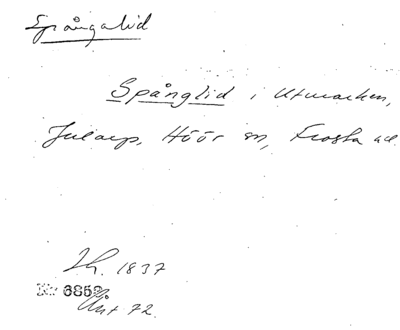 Spångalid
Spånglid i Utmarken,
Jularp, Höör sn, Frosta hd
1837
Nr 6852
72.